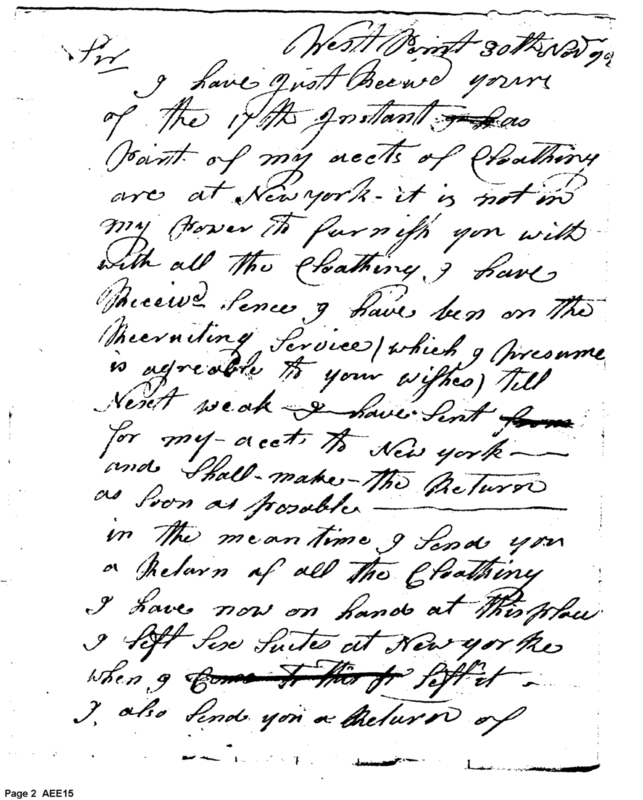 West Point 30th Novr 79
Sir
I have Just Receivd yours
of the 17th Instant as
Part of my accts of Cloathing
are at New york - it is not in
my Power to furnish you with
with all the Cloathing I have
Receivd Sence I have ben on the
Recruiting Service (which I presume
is agreable to your wishes) till
Next weak - I have Sent from
for my - accts to New york -
and Shall - make - the Return
as Soon as posable
in the mean time I Send you
a Return of all the Cloathing
I have now on hand at this place
I left Six Suites at New yorke
when I Come to this left it -
I also Send you a Return of
Page 2 AEE15